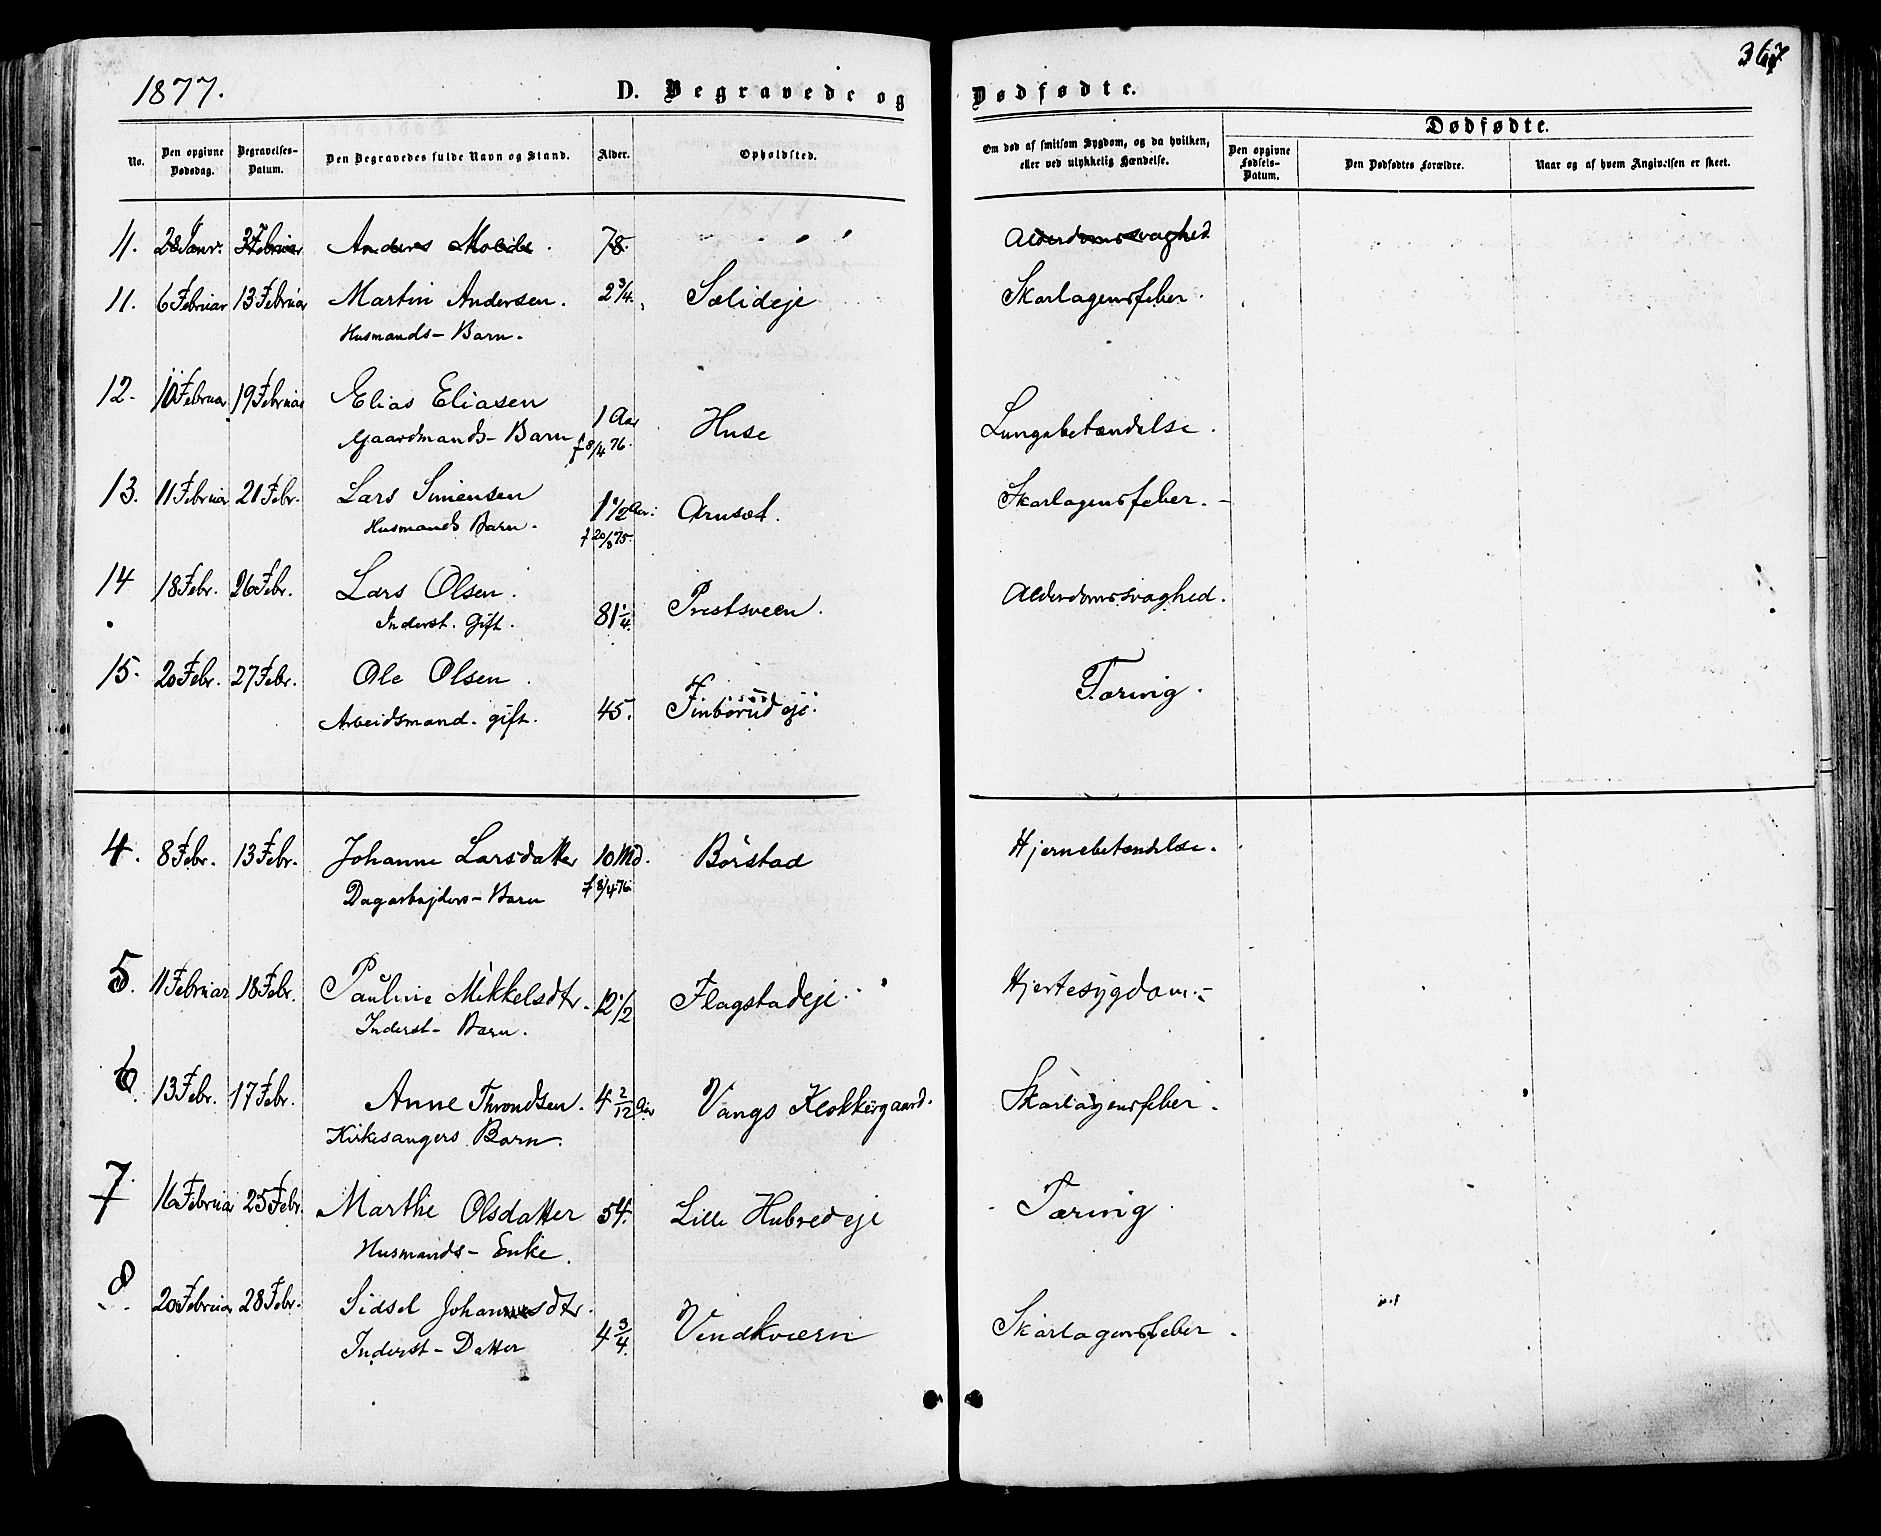 1877.
D. Begravede og Dødfødte.
367
No.
Den opgivne Dødsdag.
Begravelses-Datum.
Den Begravedes fulde Navn og Stand.
Alder.
Opholdsted.
Om død af smitsom Sygdom, og da hvilken, eller ved ulykkelig Hændelse.
Dødfødte.
Den opgivne Fødsels-Datum.
Den Dødfødtes Forældre.
Naar og af hvem Angivelsen er skeet.
11. 28 Janr. Februar Anders 78. Alderdomssvaghed
11. 6 Februar 13 Februar Martin Andersen. 2 3/4. Sælideje Skarlagensfeber.
Husmands-Barn.
12. 10 Februar 19 Februar Elias Eliasen 1 Aar Huse Lungebetændelse.
Gaardmands-Barn f 8/4 76.
13. 11 Februar 21 Febr. Lars Simensen 1 1/2 Aar. Arnset. Skarlagensfeber.
Husmands Barn. f 20/8 75.
14 18 Febr. 26 Febr. Lars Olsen. 81 1/4. Prestsveen. Alderdomssvaghed.
Inderst. Gift.
15. 20 Febr. 27 Febr. Ole Olsen. 45. Finbörud eje. Tæring.
Arbeidsmand. gift.
4. 8 Febr. 13 Febr. Johanne Larsdatter 10 Md. Börstad Hjernebetændelse.
Dagarbejders-Barn f 8/4 76
5. 11 Februar 18 Febr. Pauline Mikkelsdtr. 12 1/2 Flagstadeje. Hjertesygdom.
Inderst-Barn.
6. 13 Febr. 17 Febr. Anne Throndsen. 4 2/12 Aar Vangs Klokkergaard. Skarlagensfeber.
Kirkesangers Barn.
7. 16 Februar 25 Febr. Marthe Olsdatter 54. Lille Hubred eje Tæring.
Husmands-Enke.
8. 20 Februar 28 Febr. Sidsel Johannesdtr. 4 3/4. Vendkværn Skarlagensfeber.
Inderst-Datter